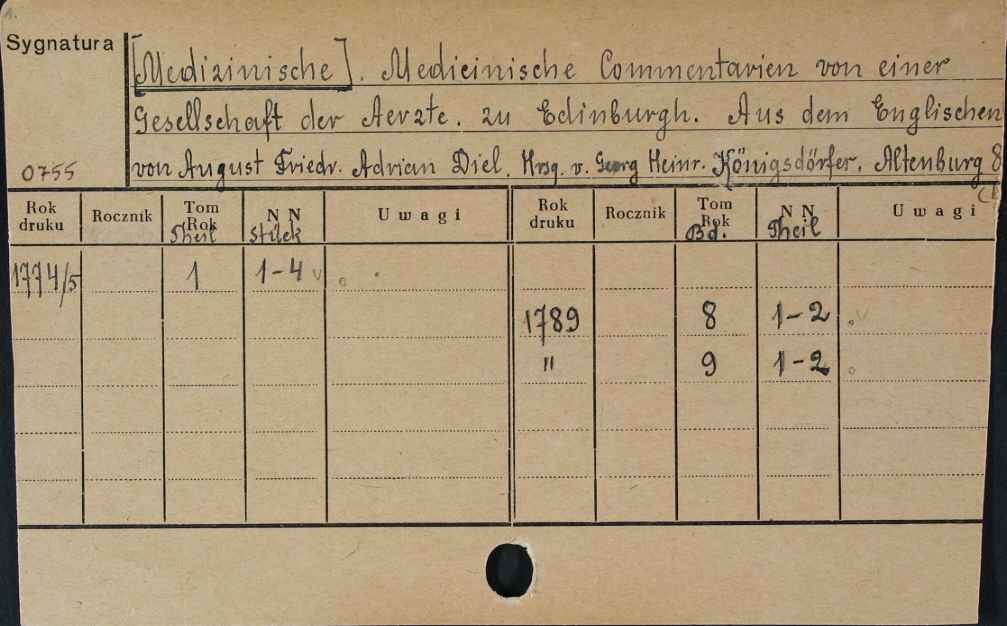 1.
Sygnatura
[Medizinische]. Medicinische Commentarien von einer
Gesellschaft der Aerzte. zu Edinburgh. Aus dem Englischen
0755 von August Friedr. Adrian Diel. Hrsg. v. Georg Heinr. Königsdörfer. Altenburg 8
Rok druku Rocznik Tom Rok Theil N N Stück Uwagi Rok druku Rocznik Tom Rok Bd. N N Theil Uwagi
1774/5 1 1-4 v
1789 8 1-2 v
" 9 1-2